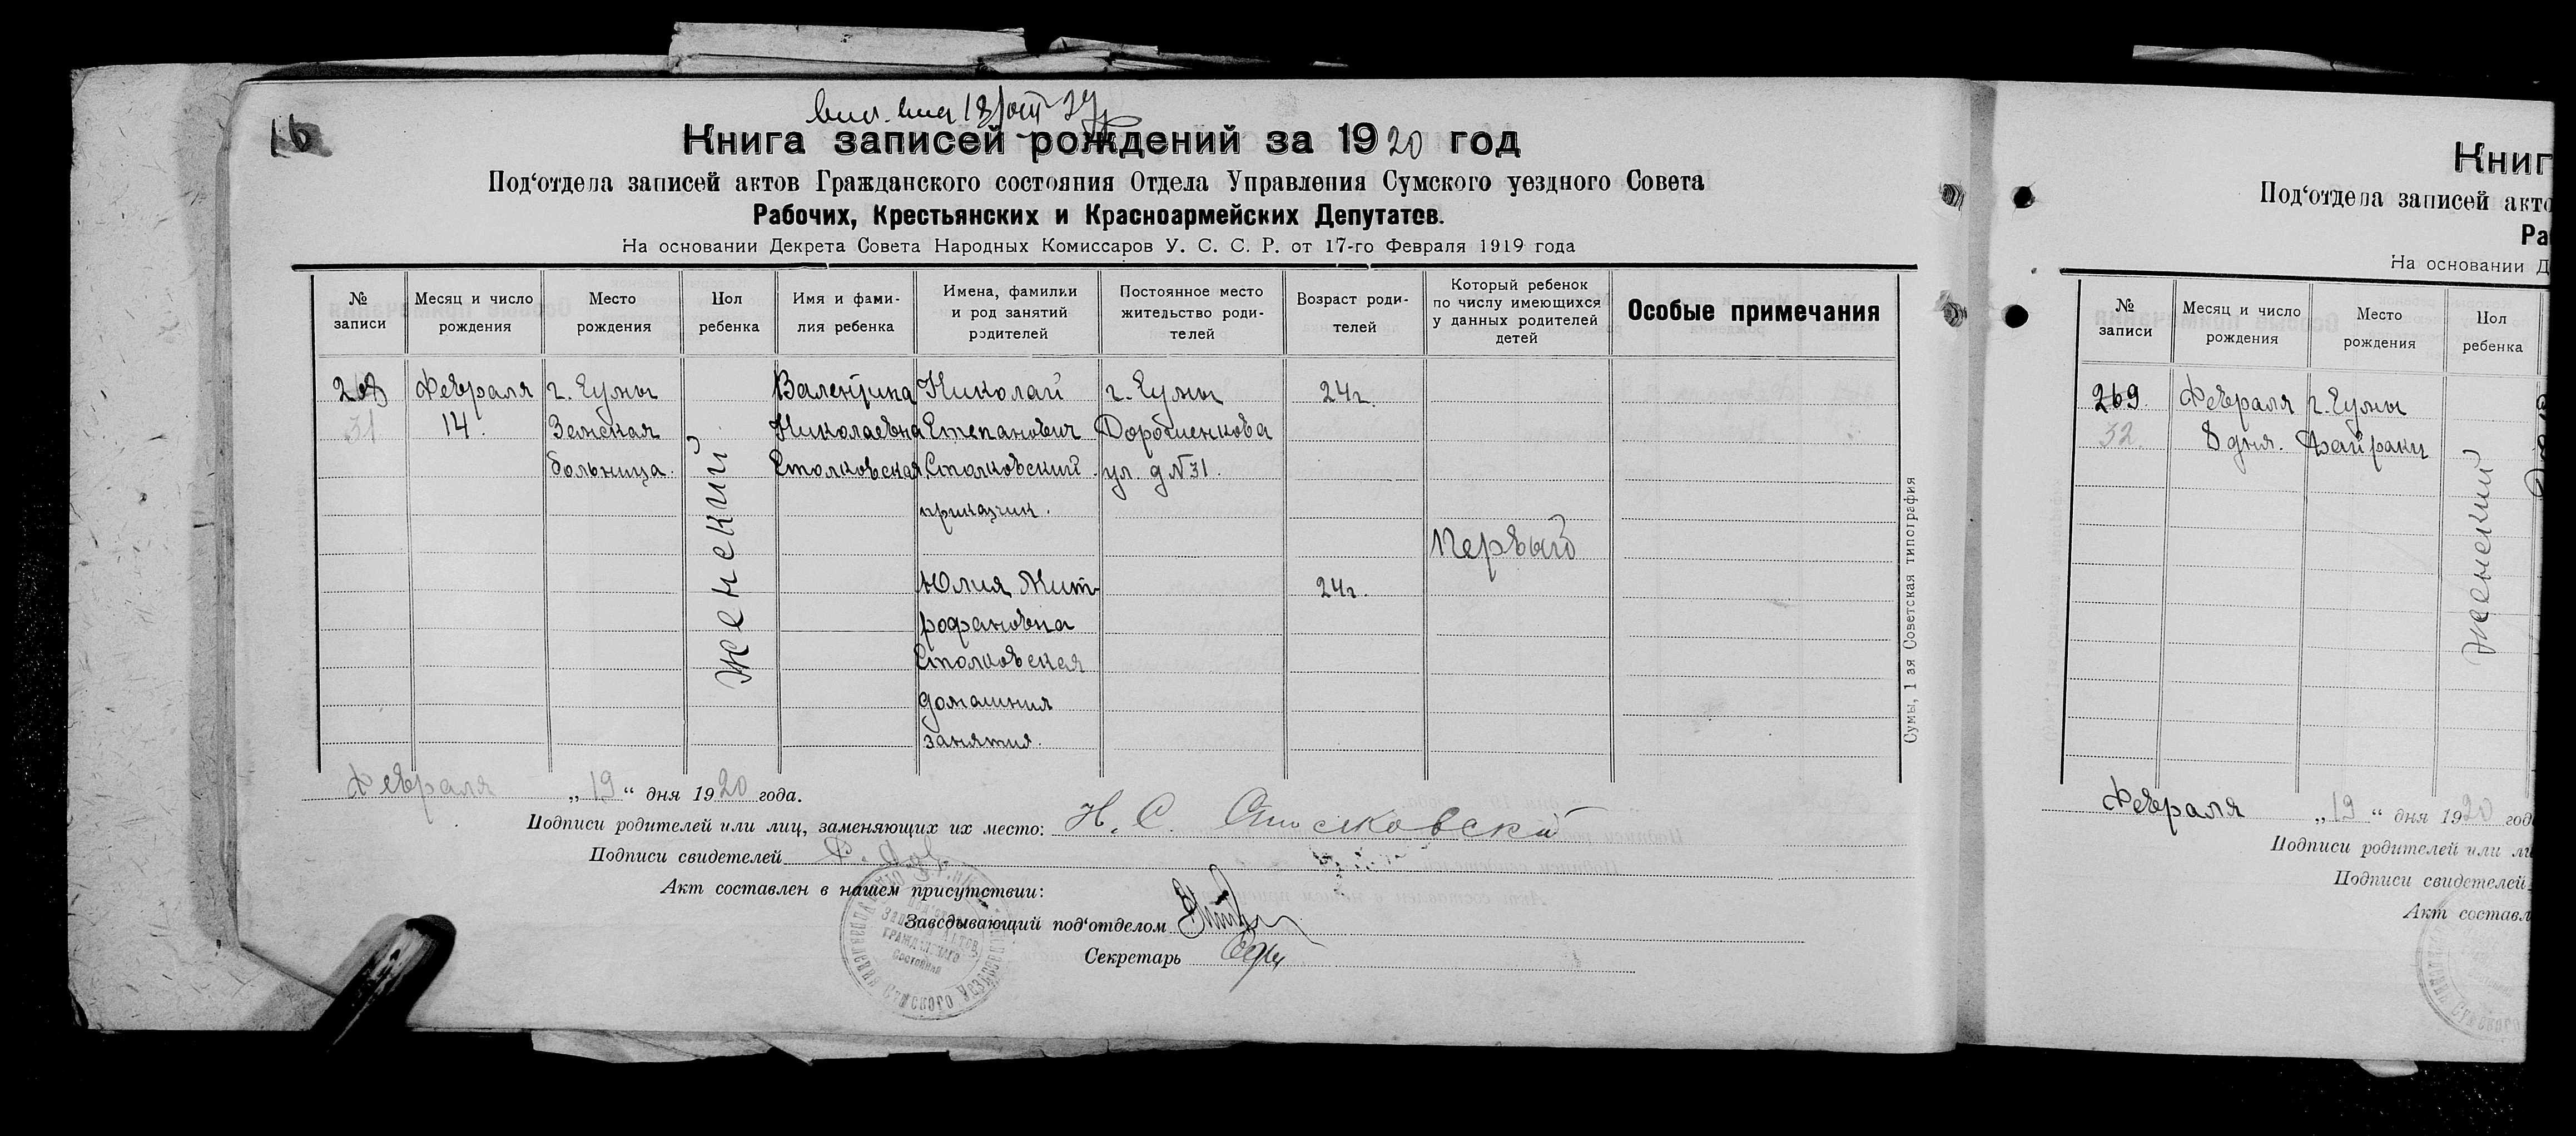 16
Книга записей рождений за 1920 год
Под‘отдела записей актов Гражданского состояния Отдела Управления Сумского уездного Совета
Рабочих, Крестьянских и Красноармейских Депутатов.
На основании Декрета Совета Народных Комиссаров У. С. С. Р. от 17-го Февраля 1919 года
№ записи
Месяц и число рождения
Место рождения
Пол ребенка
Имя и фами-
лия ребенка
Имена, фамилии
и род занятий
родителей
Постоянное место
жительство роди-
телей
Возраст роди-
телей
Который ребенок
по числу имеющихся
у данных родителей
детей
Особые примечания
268
31
Февраля
14.
г. Сумы
Земская
больница.
Женский
Валентина
Николаевна
Стомковская
Николай
Степанович
Стомковский.
приказчик.
Юлия Мит-
рофановна
Стомковская
домашния
занятия.
г. Сумы
ул. д №31.
24 г.
24 г.
Первый
Сумы, 1 ая Советская типография
Февраля „19“ дня 1920 года.
Подписи родителей или лиц, заменяющих их место: Н. С.
Подписи свидетелей
Акт составлен в нашем присутствии:
Заведывающий под‘отделом
Секретарь
Книг
Под‘отдела записей акто
Ра
На основании Д
№ записи
Месяц и число рождения
Место рождения
Пол ребенка
269
32.
Февраля
8 дня.
г. Сумы
Женский
Февраля „19“ дня 1920 год
Подписи родителей или ли
Подписи свидетелей
Акт составл